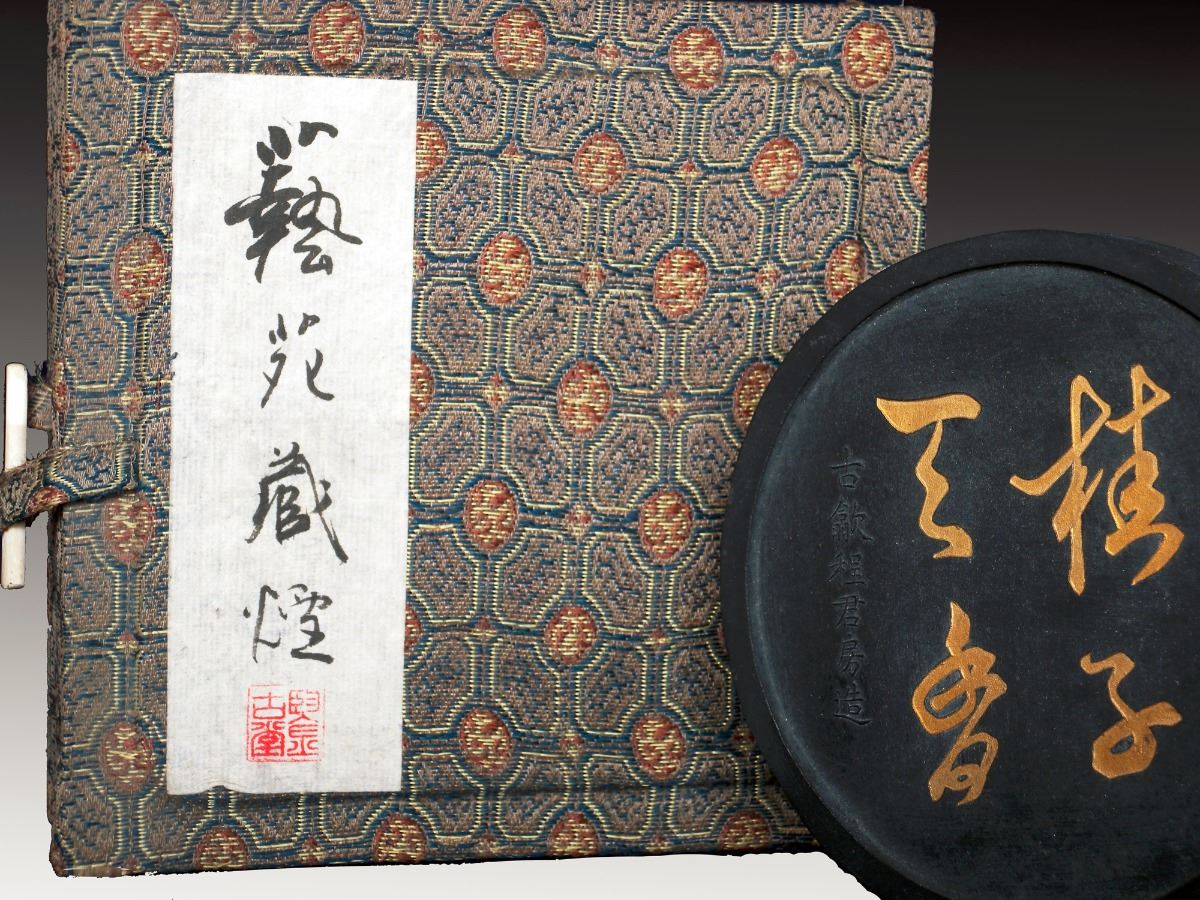 藝苑藏煙
古堂
桂子
天香
古歙程君房造